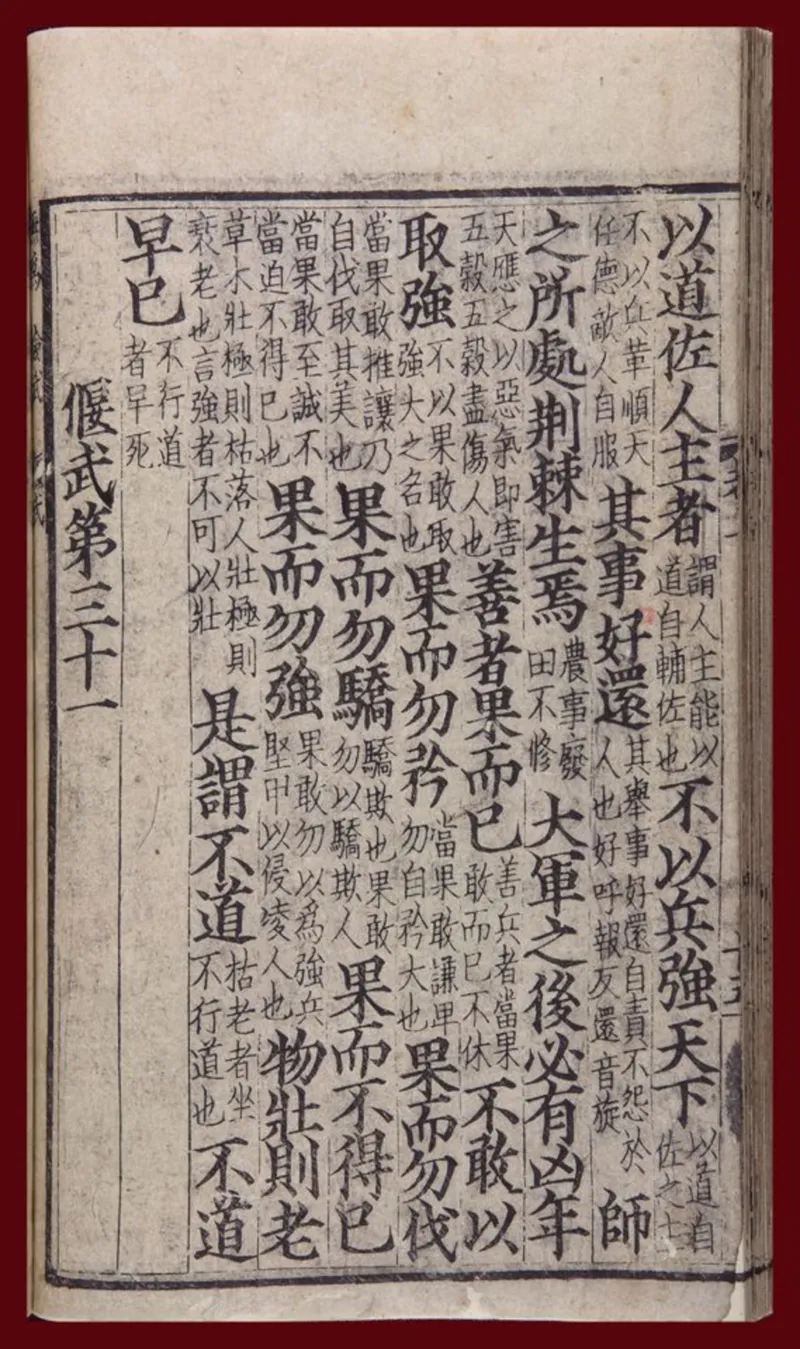 以道佐人主者謂人主能以道自輔佐也不以兵強天下以道自佐之
不以兵革順天任德敵人自服其事好還其舉事好還自責不怨於人也好呼報反還音旋師
之所處荆棘生焉農事廢田不修大軍之後必有凶年
天應之以惡氣即害五穀五穀盡傷人也善者果而已善兵者當果敢而已不休不敢以
取強不以果敢取強大之名也果而勿矜當果敢謙卑勿自矜大也果而勿伐
當果敢推讓乃自伐取其美也果而勿驕驕欺也果敢勿以驕欺人果而不得已
當果敢至誠不當迫不得已也果而勿強果敢勿以為強兵堅甲以侵凌人也物壯則老
草木壯極則枯落人壯極則衰老也言強者不可以壯是謂不道枯老者坐不行道也不道
早已不行道者早死
偃武第三十一